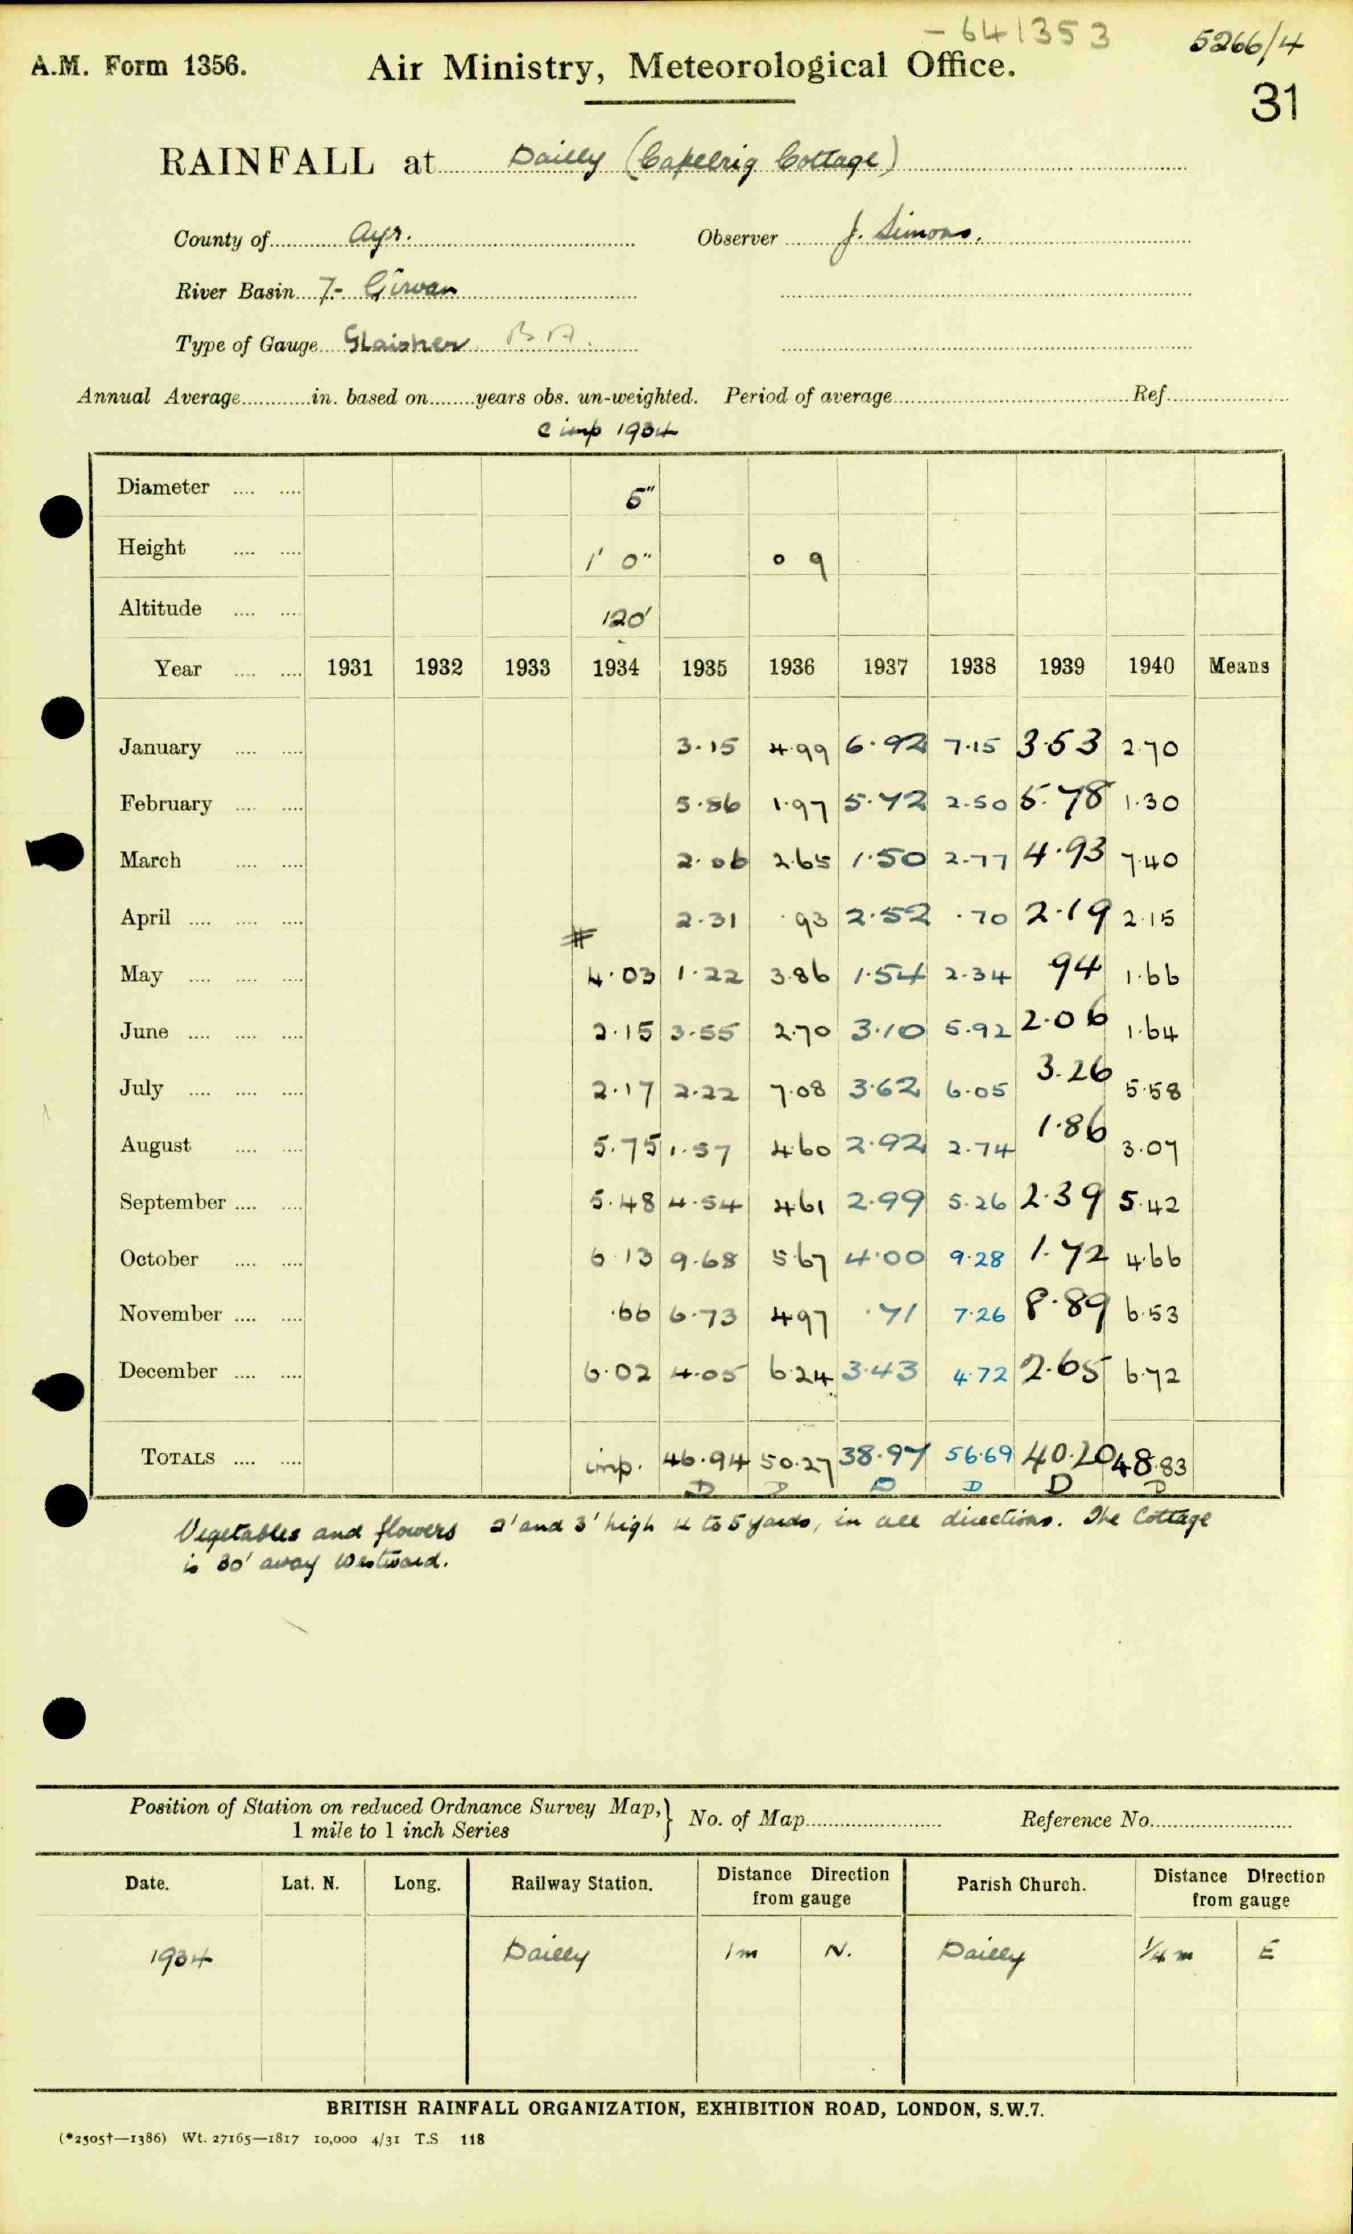 - 641353
5266/4
A.M. Form 1356.
Air Ministry, Meteorological Office.
31
RAINFALL at Dailly (Capelrig Cottage)
County of Ayr. Observer J. Simons.
River Basin 7- Girvan
Type of Gauge Glaisher B A.
Annual Average in. based on years obs. un-weighted. Period of average Ref.
c imp 1934
Diameter 5"
Height 1' 0" 0 9
Altitude 120'
Year 1931 1932 1933 1934 1935 1936 1937 1938 1939 1940 Means
January 3.15 4.99 6.92 7.15 3.53 2.70
February 5.86 1.97 5.72 2.50 5.78 1.30
March 2.06 2.65 1.50 2.77 4.93 7.40
April 2.31 .93 2.52 .70 2.19 2.15
May 4.03 1.22 3.86 1.54 2.34 94 1.66
June 2.15 3.55 2.70 3.10 5.92 2.06 1.64
July 2.17 2.22 7.08 3.62 6.05 3.26 5.58
August 5.75 1.57 4.60 2.92 2.74 1.86 3.07
September 5.48 4.54 4.61 2.99 5.26 2.39 5.42
October 6.13 9.68 5.67 4.00 9.28 1.72 4.66
November .66 6.73 4.97 .71 7.26 8.89 6.53
December 6.02 4.05 6.24 3.43 4.72 2.65 6.72
TOTALS imp. 46.94 50.27 38.97 56.69 40.20 48.83
D D D D D D
Vegetables and flowers 2' and 3' high 4 to 5 yards, in all directions. The Cottage
is 30' away Westward.
Position of Station on reduced Ordnance Survey Map, } No. of Map Reference No.
1 mile to 1 inch Series
Date. Lat. N. Long. Railway Station. Distance Direction from gauge Parish Church. Distance Direction from gauge
1934 Dailly 1m N. Dailly 1/4 m E
BRITISH RAINFALL ORGANIZATION, EXHIBITION ROAD, LONDON, S.W.7.
(*2505†—1386) Wt. 27165—1817 10,000 4/31 T.S 118